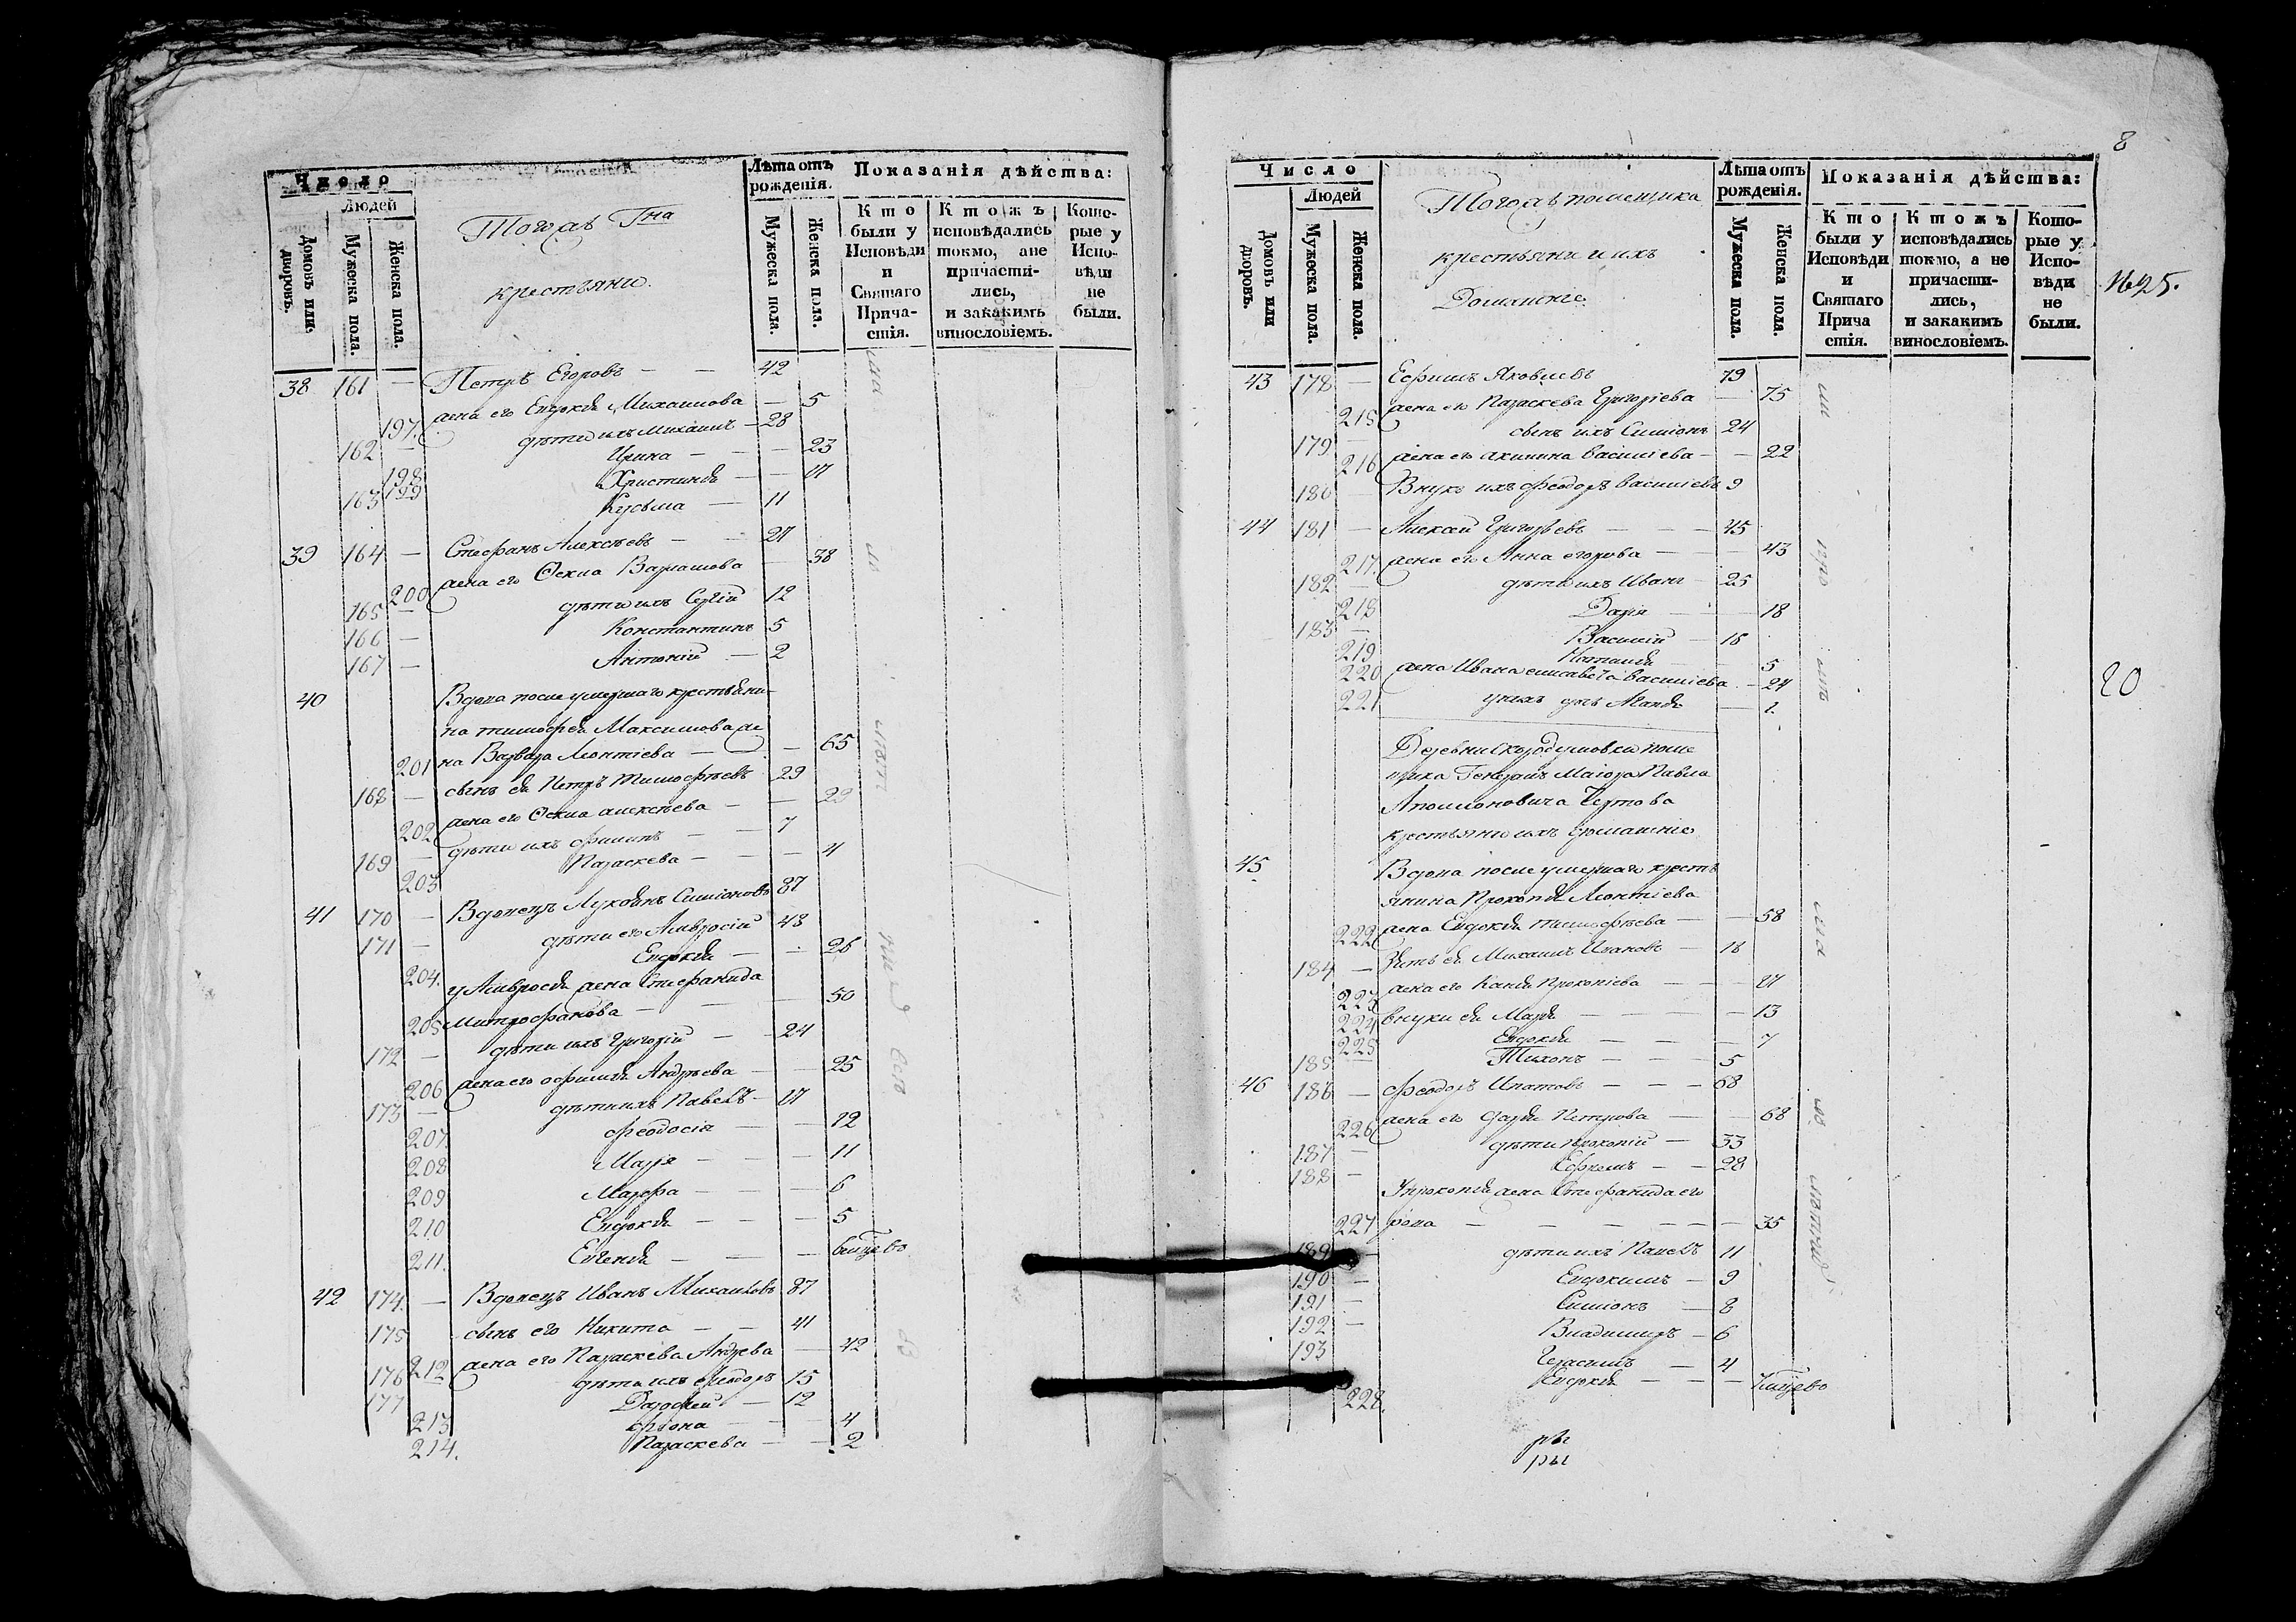 Число
Людей
Домовъ или дворовъ.
Мужеска пола.
Женска пола.
Тогожъ Гна
крестьяне.
Лѣта отъ рожденія.
Мужеска пола.
Женска пола.
Показанія дѣйства:
Кто были у Исповѣди и Святаго Прича-стія.
Ктожъ исповѣдались токмо, ане причасти-лись, и закакимъ винословіемъ.
Кото-рые у Испо-вѣди не были.
38 161 — Петръ Егоровъ — — 42
197. жена его Евдокія Михаилова — 5
162 — дѣти ихъ Михаилъ — 28
198 Ирина — — 23
199 Христина — — 17
163 Кузьма — 11
39 164 — Стефанъ Алексѣевъ — — 27
200 жена его Ѳекла Варламова — 38
165 — дѣти ихъ Сергій 12
166 — Константинъ 5
167 — Антоній — 2
40 Вдова после умершаго крестьяни-
на тимофея Максимова же
201 на Варвара Леонтіева — — 65
168 — сынъ ея Петръ Тимофѣевъ 29
202 жена его Ѳекла алексѣева — — 29
169 — дѣти ихъ филипъ — — 7
203 Параскева — — — 4
41 170 — Вдовецъ Лукіянъ Симіоновъ 87
171 — дѣти его Амвросій 43
204. Евдокія — — 26
у Амвросія жена Стефанида
205 Митрофанова — — — 50
172 — дѣти ихъ Григорій — 24
206 жена его офимія Андреева — — 25
173 — дѣти ихъ Павелъ — 17
207. феодосія — — 12
208 Марія — — — 11
209 Марфа — — — 6
210 Евдокія — — — 5
211. Евгенія — — —
42 174. — Вдовецъ Иванъ Михаиловъ 87
175 сынъ его Никита — — 41
212 жена его Параскева Андреева — 42
176 — дѣти ихъ Феодоръ 15
177 Дорофей — 12
213 — — 4
214. Параскева — — 2
8
Число
Людей
Домовъ или дворовъ.
Мужеска пола.
Женска пола.
Тогожъ помещика
крестьяне и ихъ
Домашніе.
Лѣта отъ рожденія.
Мужеска пола.
Женска пола.
Показанія дѣйства:
Кто были у Исповѣди и Святаго Прича стія.
Ктожъ исповѣдались токмо, а не причасти-лись, и закакимъ винословіемъ.
Кото-рые у Испо-вѣди не были.
№25.
43 178 — Ефимъ Яковлевъ 79
215 жена его Параскева Григоріева — 75
179 — сынъ ихъ Симіонъ 24
216 жена его акилина василіева — — 22
180 — Внукъ ихъ феодоръ василіевъ 9
44 181 — Алексей Григорьевъ — — — 45
217. жена его Анна егорова — — 43
182 — дѣти ихъ Иванъ — 25
218 Дарія — — 18
183 — Василій — 18
219 Наталія — — 5
220 жена Ивана елисавета василіева — 24
221 — 1.
20
Деревни Скородумовки поме
щика Генералъ Маіора Павла
Аполлоновича Чертова
крестьяне ихъ домашніе
45 Вдова после умершаго кресть
янина Прокопія Леонтіева
222 жена Евдокія тимофѣева — — 58
184 — Зять ея Михаилъ Ивановъ — 18
223 жена его Прокопіева — — 17
224 внуки ея Марія — — — — 13
225 Евдокія — — — 7
185 — Тихонъ — — — 5
46 186 — феодоръ Ипатовъ — — — 68
226 жена его дарія Петрова — — 68
187 — дѣти прокопій — 33
188 — Ефремъ — — 28
Упрокопія жена Стефанида его
227 рова — — — — — — 35
189 — дѣти ихъ Павелъ 11
190 — Евдокимъ — 9
191 — Симіонъ — 8
192 — Владимиръ — 6
193 Герасимъ — 4
228. Евдокія — — —
ры
ры